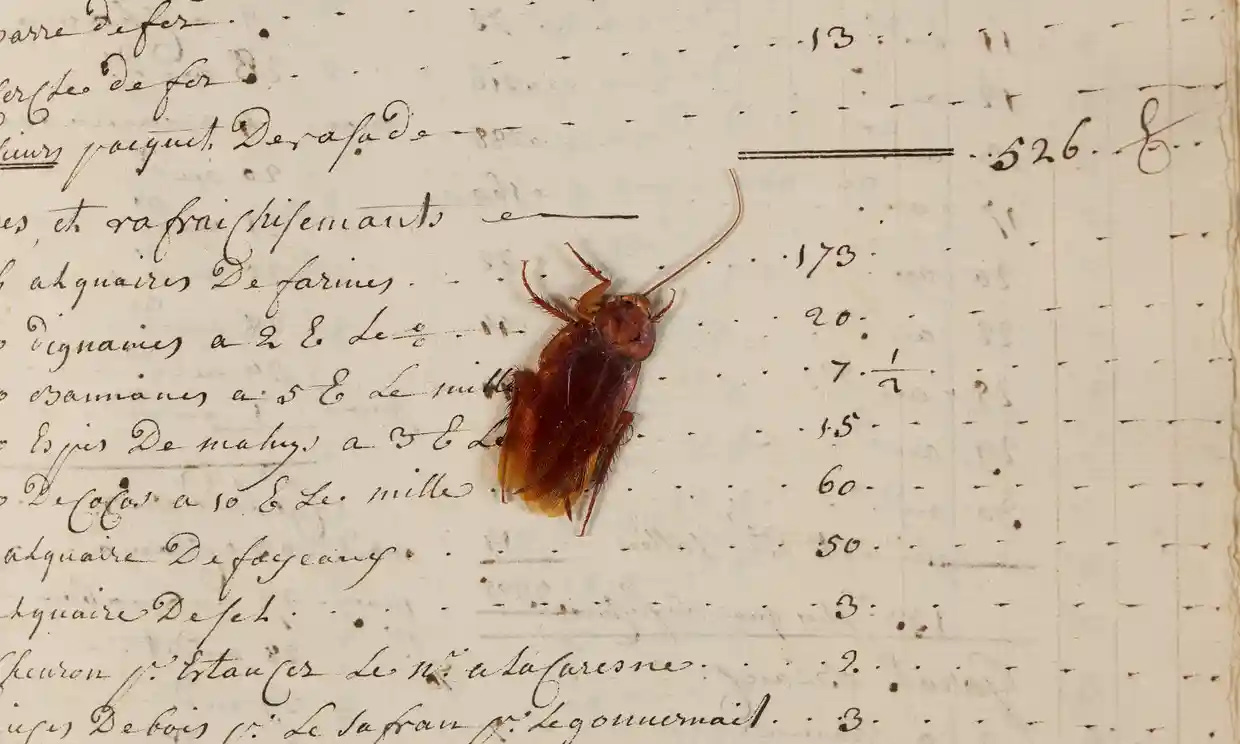 barre de fer 13
de fer
pacquet De rasade 526
et rafraichisemants
alquaires De farines 173
dignames a 2 le % 20
Bannanes a 5 Le mille 7 1/2
Espis De mahys a 3 Le 15
De Cocos a 10 Le mille 60
alquaire De fayeaux 50
alquaire De sel 3
Cheuron pr Estancer Le nre a La Caresne 2
De bois pr Le safran pr Le gouuernail 3